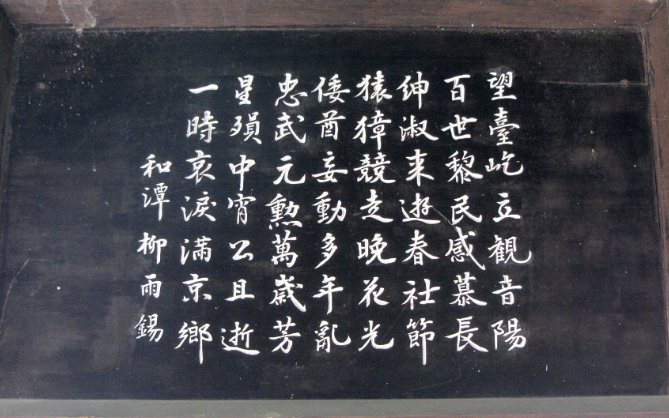 望臺屹立觀音陽
百世黎民感慕長
紳淑来遊春社節
猿獐競走晚花光
倭酋妄動多年亂
忠武元勳萬歲芳
星殞中宵公且逝
一時哀淚滿京鄉
和潭柳雨錫